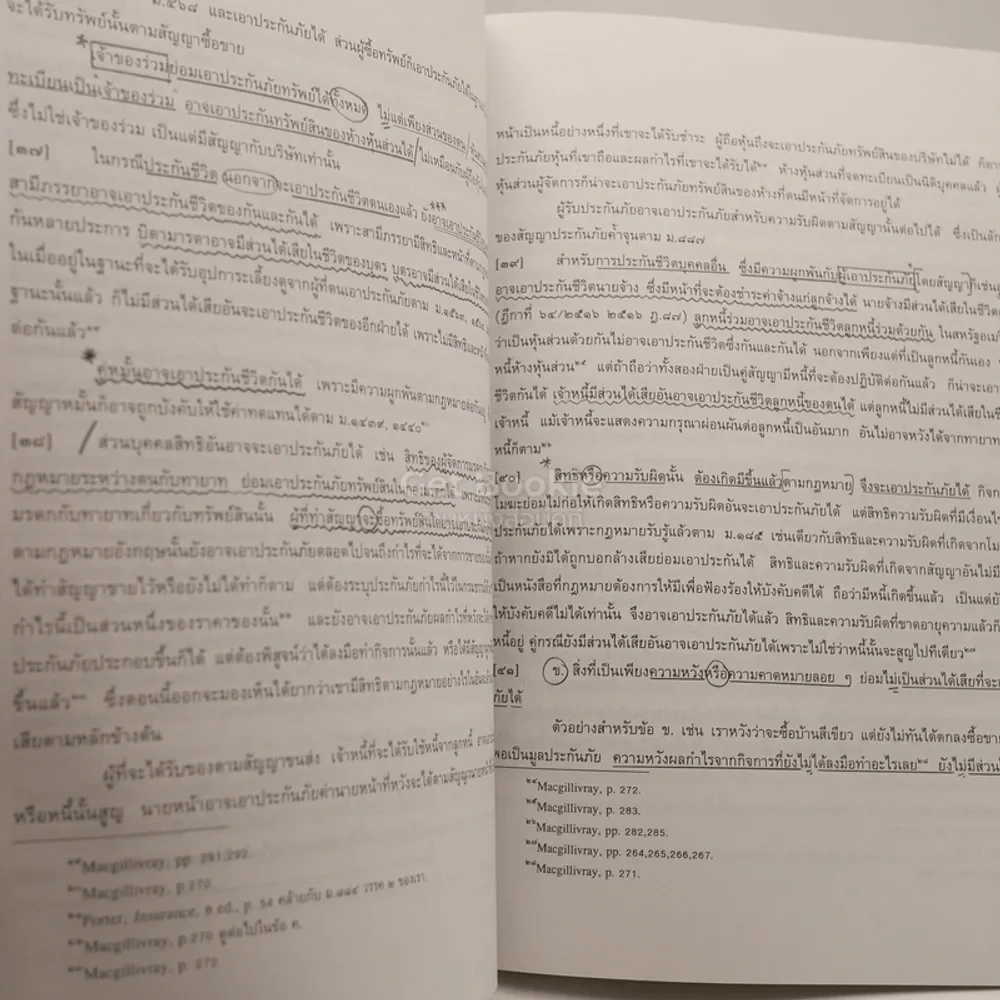 ม.๕๖๘ และเอาประกันภัยได้ ส่วนผู้ซื้อทรัพย์ก็เอาประกันภัยได้
จะได้รับทรัพย์นั้นตามสัญญาซื้อขาย
เจ้าของร่วมย่อมเอาประกันภัยทรัพย์ได้ทั้งหมด ไม่แต่เพียงส่วนของตน
ทะเบียนเป็นเจ้าของร่วม อาจเอาประกันทรัพย์สินของห้างหุ้นส่วนได้ ไม่เหมือนกับ
ซึ่งไม่ใช่เจ้าของร่วม เป็นแต่มีสัญญากับบริษัทเท่านั้น
[๓๗] ในกรณีประกันชีวิต นอกจากจะเอาประกันชีวิตตนเองแล้ว ยังอาจเอาประกัน
สามีภรรยาอาจเอาประกันชีวิตของกันและกันได้ เพราะสามีภรรยามีสิทธิและหน้าที่ตาม
กันหลายประการ บิดามารดาอาจมีส่วนได้เสียในชีวิตของบุตร บุตรอาจมีส่วนได้เสีย
ในเมื่ออยู่ในฐานะที่จะได้รับอุปการะเลี้ยงดูจากผู้ที่ตนเอาประกันภัยตาม ม.๑๕๖๓,
ฐานะนั้นแล้ว ก็ไม่มีส่วนได้เสียอันจะเอาประกันชีวิตของอีกฝ่ายได้ เพราะไม่มีสิทธิและ
ต่อกันแล้ว
คู่หมั้นอาจเอาประกันชีวิตกันได้ เพราะมีความผูกพันตามกฎหมายต่อกัน
สัญญาหมั้นก็อาจถูกบังคับให้ใช้ค่าทดแทนได้ตาม ม.๑๔๓๙, ๑๔๔๐
[๓๘] ส่วนบุคคลสิทธิอันอาจจะเอาประกันภัยได้ เช่น สิทธิของผู้จัดการมรดก
กฎหมายระหว่างตนกับทายาท ย่อมเอาประกันภัยทรัพย์สินในกองมรดกได้
มรดกกับทายาทเกี่ยวกับทรัพย์สินนั้น ผู้ที่ทำสัญญาจะซื้อทรัพย์สิน
ตามกฎหมายอังกฤษนั้นยังอาจเอาประกันภัยตลอดไปจนถึงกำไรที่จะได้จากการขาย
ได้ทำสัญญาขายไว้หรือยังไม่ได้ทำก็ตาม แต่ต้องระบุประกันภัยกำไรนี้ไว้ใน
กำไรนี้เป็นส่วนหนึ่งของราคาของนั้น และยังอาจเอาประกันภัยผลกำไรที่
ประกันภัยประกอบขึ้นก็ได้ แต่ต้องพิสูจน์ว่าได้ลงมือทำกิจการนั้นแล้ว หรือได้มีสัญญา
ขึ้นแล้ว ซึ่งตอนนี้ออกจะมองเห็นได้ยากว่าเขามีสิทธิตามกฎหมายอย่างไร
เสียตามหลักข้างต้น
ผู้ที่จะได้รับของตามสัญญาขนส่ง เจ้าหนี้ที่จะได้รับใช้หนี้จากลูกหนี้
หรือหนี้นั้นสูญ นายหน้าอาจเอาประกันภัยค่านายหน้าที่หวังจะได้ตามสัญญานายหน้า
Macgillivray, pp. 291,292.
Macgillivray, p.270.
Porter, Insurance, 8 ed., p. 54 คล้ายกับ ม.๘๘๔ วรรค ๒ ของเรา.
Macgillivray, p.270 ดูต่อไปในข้อ ค.
Macgillivray, p. 272.
หน้าเป็นหนี้อย่างหนึ่งที่เขาจะได้รับชำระ ผู้ถือหุ้นถึงจะเอาประกันภัยทรัพย์สินของบริษัทไม่ได้ ก็อาจ
ประกันภัยหุ้นที่เขาถือและผลกำไรที่เขาจะได้รับได้ ห้างหุ้นส่วนที่จดทะเบียนเป็นนิติบุคคลแล้ว
หุ้นส่วนผู้จัดการก็น่าจะเอาประกันภัยทรัพย์สินของห้างที่ตนมีหน้าที่จัดการอยู่ได้
ผู้รับประกันภัยอาจเอาประกันภัยสำหรับความรับผิดตามสัญญานั้นต่อไปได้ ซึ่งเป็น
ของสัญญาประกันภัยค้ำจุนตาม ม.๘๘๗
[๓๙] สำหรับการประกันชีวิตบุคคลอื่น ซึ่งมีความผูกพันกับผู้เอาประกันภัยโดยสัญญา ก็เช่น
อาจเอาประกันชีวิตนายจ้าง ซึ่งมีหน้าที่จะต้องชำระค่าจ้างแก่ลูกจ้างได้ นายจ้างมีส่วนได้เสียในชีวิต
(ฎีกาที่ ๖๔/๒๕๑๖ ๒๕๑๖ ฎ.๘๗) ลูกหนี้ร่วมอาจเอาประกันชีวิตลูกหนี้ร่วมด้วยกันได้ ในสหรัฐอเม
ว่าเป็นหุ้นส่วนด้วยกันไม่อาจเอาประกันชีวิตซึ่งกันและกันได้ นอกจากเพียงแต่ที่เป็นลูกหนี้กันเอง
หนี้ห้างหุ้นส่วน แต่ถ้าถือว่าทั้งสองฝ่ายเป็นคู่สัญญามีหนี้ที่จะต้องปฏิบัติต่อกันแล้ว ก็น่าจะเอา
ชีวิตกันได้ เจ้าหนี้มีส่วนได้เสียอันอาจเอาประกันชีวิตลูกหนี้ของตนได้ แต่ลูกหนี้ไม่มีส่วนได้เสียใน
เจ้าหนี้ แม้เจ้าหนี้จะแสดงความกรุณาผ่อนผันต่อลูกหนี้เป็นอันมาก อันไม่อาจหวังได้จากทายาท
หนี้ก็ตาม๒๖
[๔๐] สิทธิหรือความรับผิดนั้น ต้องเกิดมีขึ้นแล้วตามกฎหมาย จึงจะเอาประกันภัยได้ กิจ
โมฆะย่อมไม่ก่อให้เกิดสิทธิหรือความรับผิดอันจะเอาประกันภัยได้ แต่สิทธิความรับผิดที่มีเงื่อนไข
ประกันภัยได้เพราะกฎหมายรับรู้แล้วตาม ม.๑๘๕ เช่นเดียวกับสิทธิและความรับผิดที่เกิดจากโม
ถ้าหากยังมิได้ถูกบอกล้างเสียย่อมเอาประกันได้ สิทธิและความรับผิดที่เกิดจากสัญญาอันไม่มี
เป็นหนังสือที่กฎหมายต้องการให้มีเพื่อฟ้องร้องให้บังคับคดีได้ ถือว่ามีหนี้เกิดขึ้นแล้ว เป็นแต่
ให้บังคับคดีไม่ได้เท่านั้น จึงอาจเอาประกันภัยได้แล้ว สิทธิและความรับผิดที่ขาดอายุความแล้วก็
หนี้อยู่ คู่กรณียังมีส่วนได้เสียอันอาจเอาประกันภัยได้เพราะไม่ใช่ว่าหนี้นั้นจะสูญไปทีเดียว๒๗
[๔๑] ข. สิ่งที่เป็นเพียงความหวังหรือความคาดหมายลอย ๆ ย่อมไม่เป็นส่วนได้เสียที่จะ
ภัยได้
ตัวอย่างสำหรับข้อ ข. เช่น เราหวังว่าจะซื้อบ้านสีเขียว แต่ยังไม่ทันได้ตกลงซื้อขาย
พอเป็นมูลประกันภัย ความหวังผลกำไรจากกิจการที่ยังไม่ได้ลงมือทำอะไรเลย๒๘ ยังไม่มีส่วน
๒๔Macgillivray, p. 272.
๒๕Macgillivray, p. 283.
๒๖Macgillivray, pp. 282,285.
๒๗Macgillivray, pp. 264,265,266,267.
๒๘Macgillivray, p. 271.